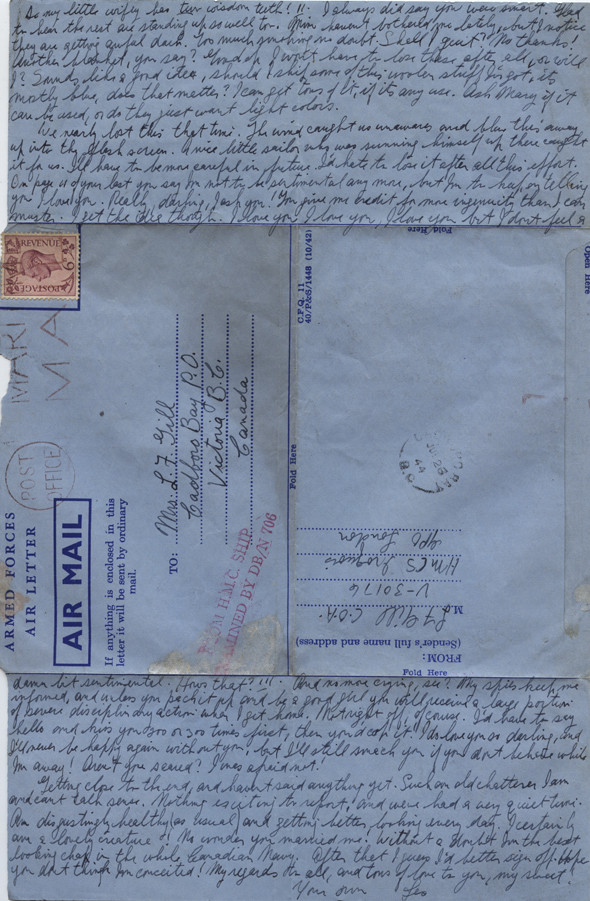 So my little wifey has two wisdom teeth! !! I always did say you were smart. Glad
to hear the rest are standing up so well too. Mine haven't bothered me lately, but I notice
they are getting awful dark. Too much smoking no doubt. Shall I quit? No thanks!
Another blanket, you say? Good-o. I won't have to lose these after all, or will
I? Sounds like a good idea, should I ship some of this woolen stuff I've got, it's
mostly blue, does that matter? I can get tons of it, if it's any use. Ask Mary if it
can be used, or do they just want light colors.
I've nearly lost this that time. The wind caught us unawares and blew this away
up into the flash screen. A nice little sailor who was sunning himself up there caught
it for us. I'll have to be more careful in future I'd hate to lose it after all this effort.
On page of your last you say I'm not to be sentimental any more, but I'm to keep on telling
you I love you. Really, darling, I ask you! You give me credit for more ingenuity than I can
muster. I get the idea though. I love you I love you, I love you but I don't feel a
POSTAGE
REVENUE
MARI
MA
POST
OFFICE
ARMED FORCES
AIR LETTER
AIR MAIL
If anything is enclosed in this
letter it will be sent by ordinary
mail.
TO:
Mrs. L. F. Gill
Cadboro Bay P.O.
Victoria B.C.
Canada
FROM H.M.C. SHIP
EXAMINED BY DB/N 706
Fold Here
Open Here
C.F.Q. 11
40/P&S/1448 (10/42)
Fold Here
26
44
B.C.
FROM:
(Sender's full name and address)
L F Gill C.O.A.
V-30176
HMCS Iroquois
GPO London
Fold Here
damn bit sentimental. How's that? !!! And no more crying, see? My spies keep me
informed, and unless you pack it up and be a good girl you will receive a large portion
of severe disciplinary action when I get home. Not right off, of course. I'd have to say
hello and kiss you 200 or 300 times first, then you'd cop it! I do love you so darling, and
I'll never be happy again without you, but I'll still smack you if you don't behave while
I'm away! Aren't you scared? I was afraid not.
Getting close to the end, and haven't said anything yet. Such an old chatterer I am
and can't talk sense. Nothing exciting to report, and we've had a very quiet time.
Am disgustingly healthy (as usual) and getting better looking every day. I certainly
am a lovely creature. No wonder you married me. Without a doubt I'm the best
looking chap in the whole Canadian Navy. After that I guess I'd better sign off. Hope
you don't think I'm conceited! My regards to all, and tons of love to you, my sweet.
Your own Les